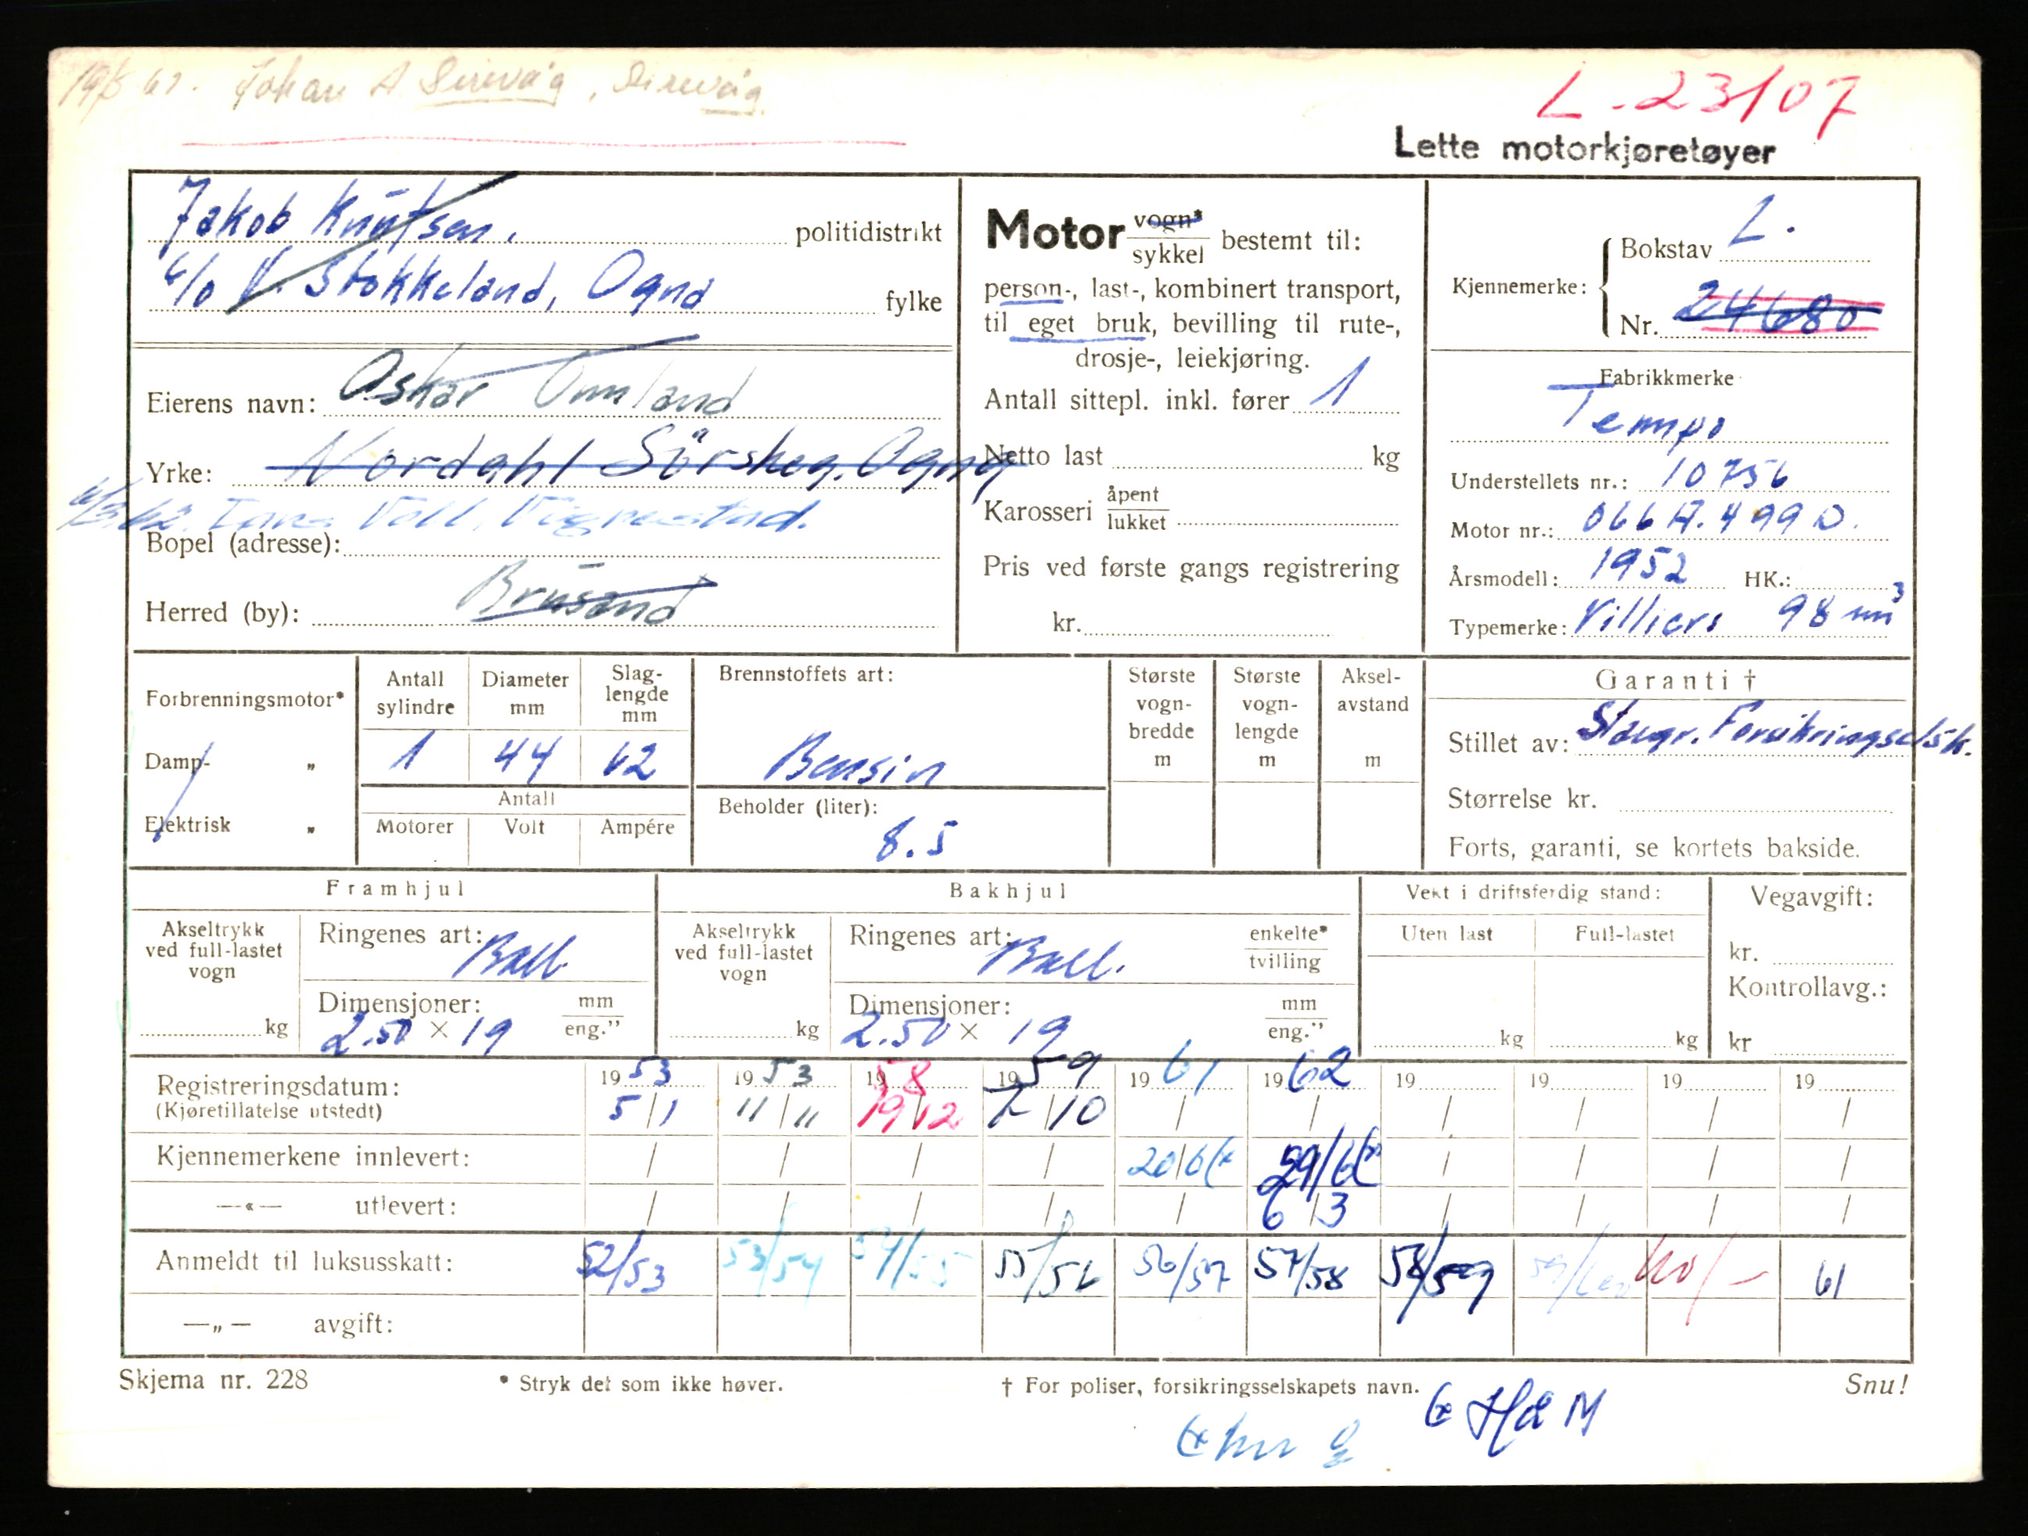 Johan A. Sirevåg, Sirevåg
L-23107
Lette motorkjøretøyer
Jakob Knutsen.
politidistrikt
c/o V. Stokkeland, Ogna
fylke
Eierens navn: Oskar Omland
Yrke: Nordahl Sørskog. Ogna
6/3 62. Voll, Vigrestad.
Bopel (adresse):
Herred (by): Brusand
Motor vogn*
sykkel bestemt til:
person-, last-, kombinert transport,
til eget bruk, bevilling til rute-,
drosje-, leiekjøring.
Antall sittepl. inkl. fører 1
Netto last kg
Karosseri åpent
lukket
Pris ved første gangs registrering
kr.
Kjennemerke: Bokstav L.
Nr. 24680
Fabrikkmerke
Tempo
Understellets nr.: 10756
Motor nr.: 066A.499D.
Årsmodell: 1952 HK.:
Typemerke: Villiers 98 mm3
Forbrenningsmotor*
Damp- „
Elektrisk „
Antall sylindre Diameter mm Slag-lengde mm
1 44 62
Antall
Motorer Volt Ampére
Brennstoffets art:
Bensin
Beholder (liter):
8.5
Største vogn-bredde m
Største vogn-lengde m
Aksel-avstand m
Garanti †
Stillet av: Stavgr. Forsikringselsk.
Størrelse kr.
Forts, garanti, se kortets bakside.
Framhjul
Akseltrykk ved full-lastet vogn
kg
Ringenes art: Ball.
Dimensjoner: mm
2.50 × 19 eng.”
Bakhjul
Akseltrykk ved full-lastet vogn
kg
Ringenes art: Ball. enkelte*
tvilling
Dimensjoner: mm
2.50 × 19 eng.”
Vekt i driftsferdig stand:
Uten last Full-lastet
kg kg
Vegavgift:
kr.
Kontrollavg.:
kr
Registreringsdatum: 1953 1953 1958 1959 1961 1962 19 19 19 19
(Kjøretillatelse utstedt) 5/1 11/11 19/12 7/10 / / / / / /
Kjennemerkene innlevert: / / / / 20/6 29/6 / / / /
—«— utlevert: / / / / / 6/3 / / / /
Anmeldt til luksusskatt: 52/53 53/54 54/55 55/56 56/57 57/58 58/59 59/60 60/- 61
—„— avgift:
Skjema nr. 228
* Stryk det som ikke høver.
† For poliser, forsikringsselskapets navn.
Snu!